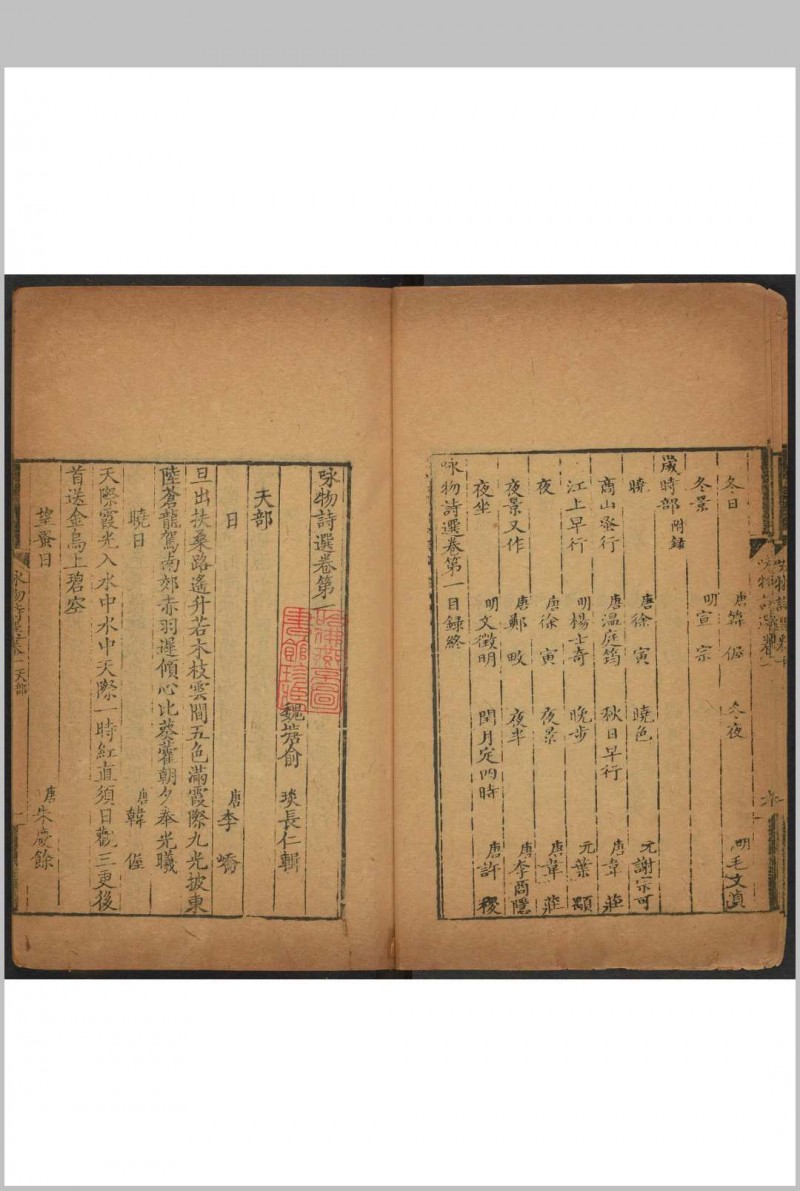 冬日 唐韓偓 冬夜 明毛文貞
冬景 明宣宗
歲時部附錄
曉 唐徐寅 曉色 元謝宗可
商山麥行 唐溫庭筠 秋日早行 唐韋莊
江上早行 明楊士奇 晚步 元葉顒
夜 唐徐寅 夜景 唐韋莊
夜景又作 唐鄭畋 夜半 唐李商隱
夜坐 明文徵明 閏月定四時 唐許稷
咏物詩選卷第一目錄終
咏物詩選卷第一
魏塘俞琰長仁輯
天部
日 唐李嶠
旦出扶桑路遙升若木枝雲間五色滿霞際九光披東
陸蒼龍駕南郊赤羽遲傾心比葵藿朝夕奉光曦
曉日 唐韓偓
天際霞光入水中水中天際一時紅直須日觀三更後
首送金烏上碧空
望蚤日 唐朱慶餘
咏物詩選卷一天部